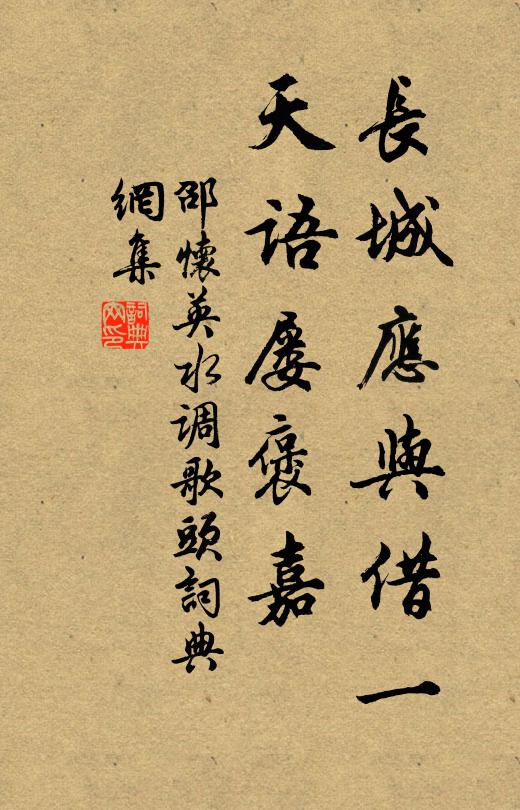 長城應與借一
天語屡褒嘉
邵懷英水调歌頭詞典
網集
詞典網印